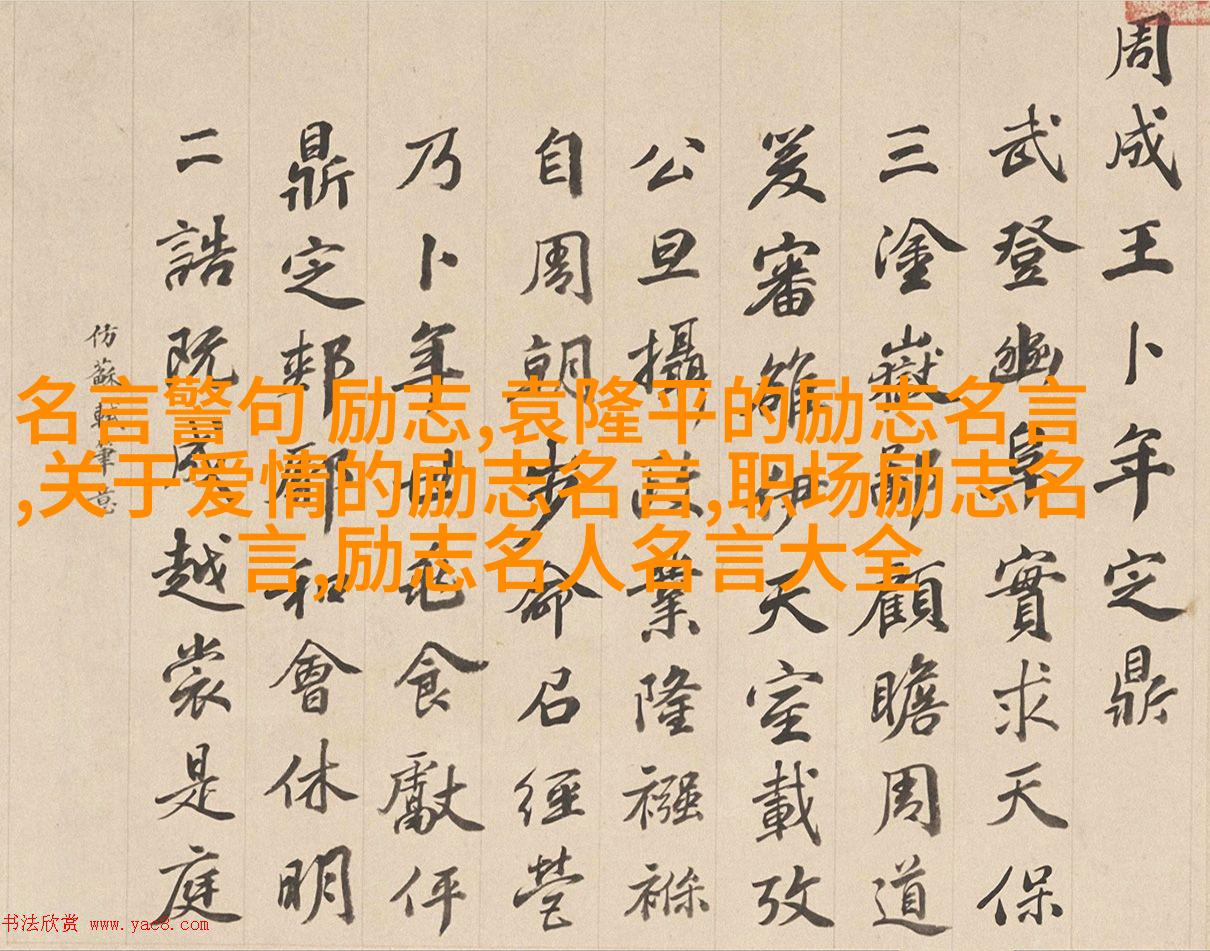 周成王卜年定鼎
武登豳阜實求天保
三塗嶽鄙顧瞻周道
爰審雒伊天室載攷
公旦攝政業隆襁褓
自周朝步命召經營
乃卜年世食獻伻
鼎定郟鄏和會休明
二誥既成越裳是庭
仿蘇軾筆意
名言警句 励志,袁隆平的励志名言
,关于爱情的励志名言,职场励志名
言,励志名人名言大全
书法欣赏 www.yac8.com